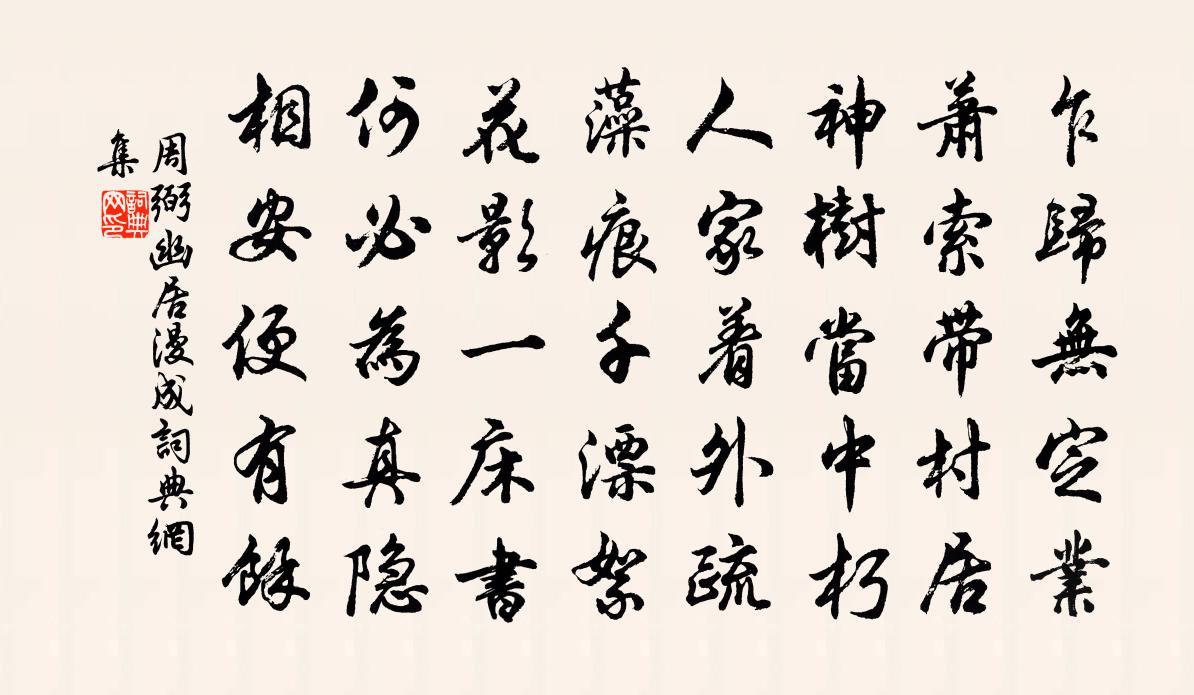 乍歸無定業
蕭索帶村居
神樹當中朽
人家着外疏
藻痕千漂絮
花影一床書
何必為真隐
相安便有餘
周弼幽居漫成詞典網
集
詞典網印